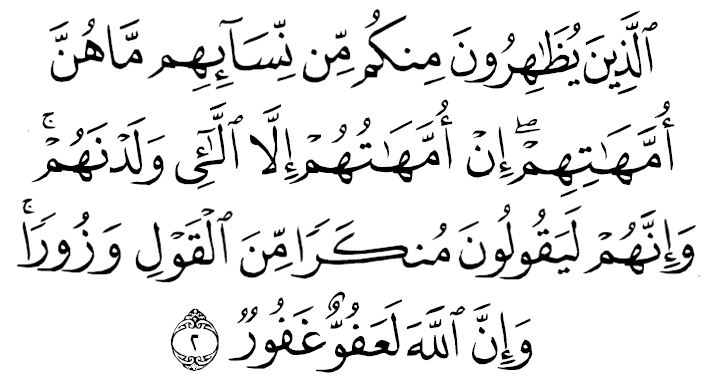 ٱلَّذِينَ يُظَٰهِرُونَ مِنكُم مِّن نِّسَآئِهِم مَّا هُنَّ
أُمَّهَٰتِهِمۡۖ إِنۡ أُمَّهَٰتُهُمۡ إِلَّا ٱلَّٰٓـِٔي وَلَدۡنَهُمۡۚ
وَإِنَّهُمۡ لَيَقُولُونَ مُنكَرٗا مِّنَ ٱلۡقَوۡلِ وَزُورٗاۚ
وَإِنَّ ٱللَّهَ لَعَفُوٌّ غَفُورٞ ٢